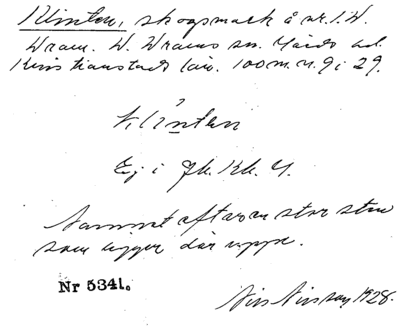 Klinten, skogsmark å nr. 1. W.
Wram. W. Wrams sn. Gärds hd.
Kristianstads län. 100 m. n. 9 i 29.
Klinten
Ej i Jk. Kk. 4.
namnet efter en stor sten
som ligger där uppe.
Nr 5341.
Nils Nilsson, 1928.